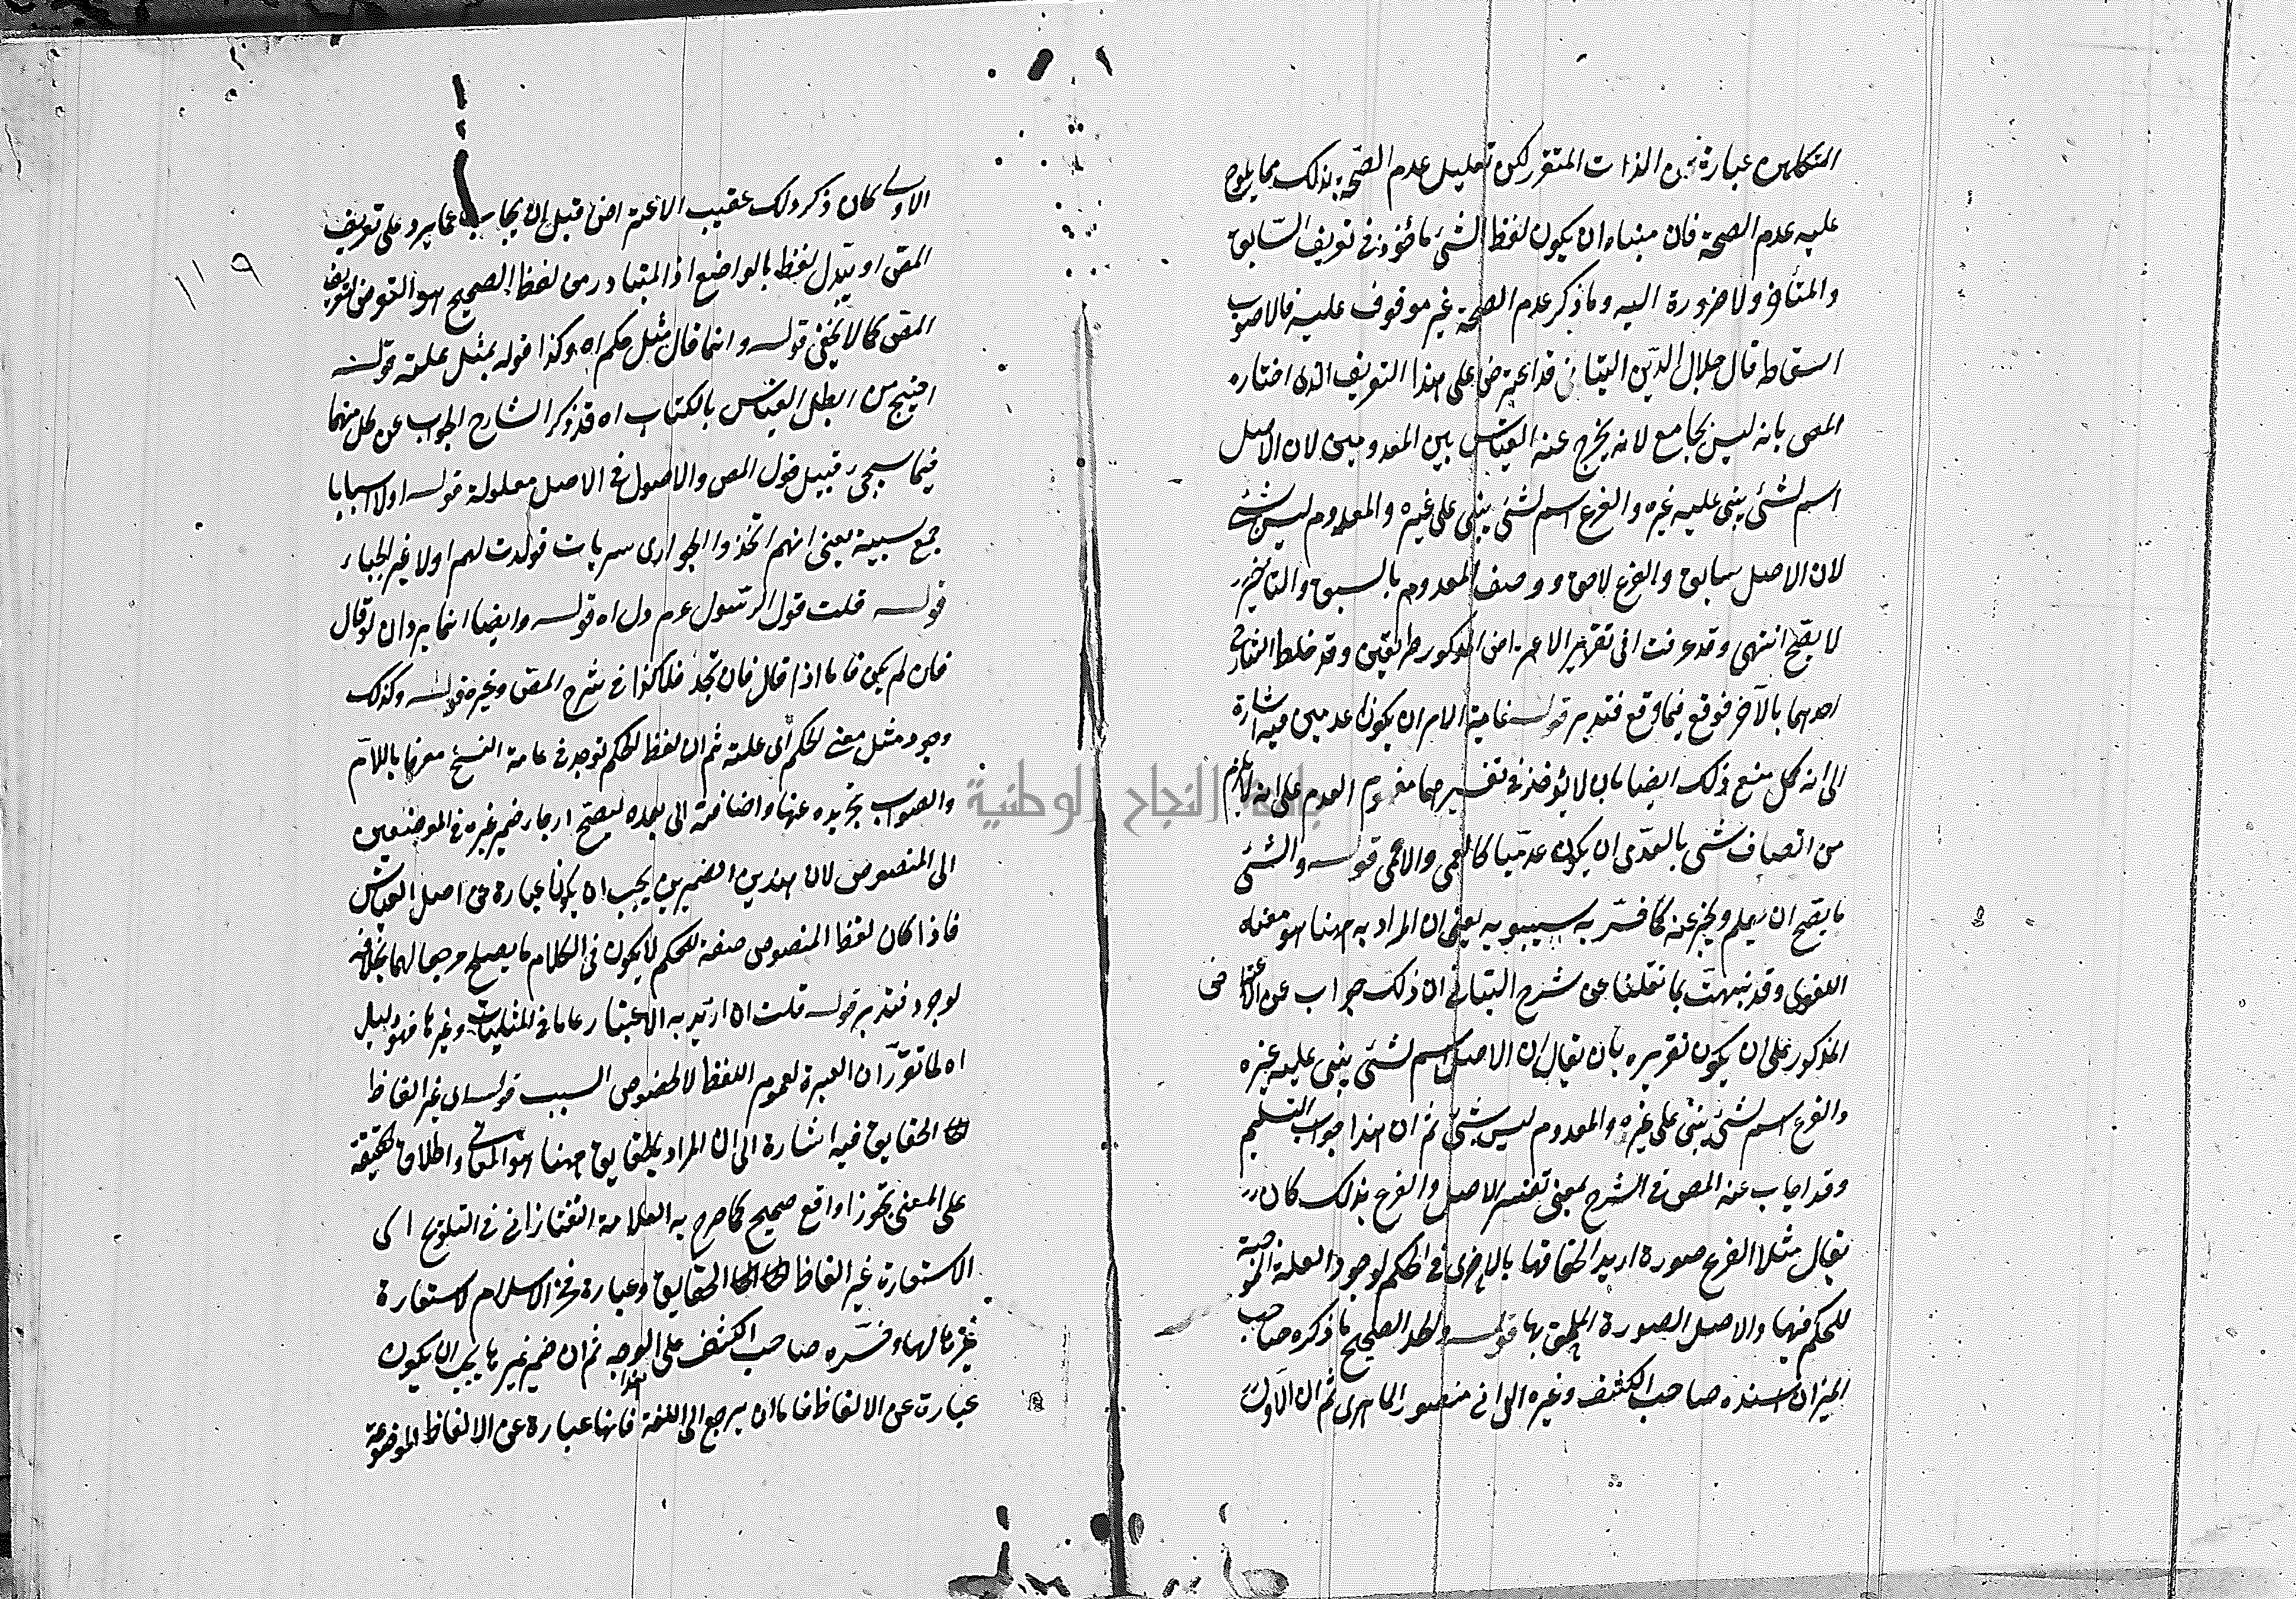 المتكلمين عبارة عن الذات المتقرر لكن تعليل عدم الصحة بذلك مما يلوح
عليه عدم الصحة فان مبناه ان يكون لفظ الشئ ماخوذ في تعريف السابق
والمتأخر ولا ضرورة اليه وما ذكر عدم الصحة غير موقوف عليه فالاصوب
اسقاطه قال جلال الدين التبانى قد اعترض على هذا التعريف الذى اختاره
المص بانه ليس بجامع لانه يخرج عنه القياس بين المعدومين لان الاصل
اسم لشئ يبنى عليه غيره والفرع اسم لشئ يبنى على غيره والمعدوم ليس بشئ
لان الاصل سابق والفرع لاحق ووصف المعدوم بالسبق والتأخر
لا يصح انتهى وقد عرفت ان تقرير الاعتراض المذكور طريقين وقد خلط الشارح
احدهما بالآخر فوقع فيما وقع فتدبر قوله غاية الامر ان يكون عدميين فيه اشارة
الى انه كل منع ذلك ايضا بان لا يؤخذ في تفسيرهما مفهوم العدم على انه لا يلزم
من اتصاف شئ بالعدمى ان يكون عدميا كالعمى والاعمى قوله والشئ
ما يصح ان يعلم ويخبر عنه كما فسر به سيبويه يعنى ان المراد به ههنا هو معناه
اللغوى وقد نبهت بما نقلنا عن شرح التبانى ان ذلك جواب عن الاعتراض
المذكور على ان يكون تقريره بان يقال ان الاصل اسم لشئ يبنى عليه غيره
والفرع اسم لشئ يبنى على غيره والمعدوم ليس بشئ ثم ان هذا جواب التسليم
وقد اجاب عنه المص في الشرح بمعنى تفسير الاصل والفرع بذلك كان
يقال مثلا الفرع صورة اريد الحاقها بالاخرى في الحكم لوجود العلة الموجبة
للحكم فيها والاصل الصورة الملحق بها قوله والحد الصحيح ما ذكره صاحب
الميزان اسنده صاحب الكشف وغيره الى ابى منصور الماتريدى ثم ان الاول
١١٩
الاولى كان ذكر ذلك عقيب الاعتراض قبل ان يجاب عما يرد على تعريف
المص او يبدل لفظ بالواضع اذ المتبادر من لفظ الصحيح هو التعرض لتعريف
المص كما لا يخفى قوله وانما قال مثل حكم اه وكذا قوله بمثل علته قوله
احتج من ابطل القياس بالكتاب اه قد ذكر الشارح الجواب عن كل منهما
فيما سيجئ قبيل قول المص والاصول في الاصل معلولة قوله اولاد سبايا
جمع سبية يعنى انهم اتخذوا الجوارى سريات فولدت لهم اولادا غير نجباء
قوله قلت قول الرسول عم دل اه قوله وايضا انما يرد ان لو قال
فان لم يكن فاما اذا قال فان تجد فلا كذا في شرح المص وغيره قوله وكذلك
وجود مثل معنى الحكم أى علته ثم ان لفظ الحكم توجد في عامة النسخ معرفا باللام
والصواب تجريده عنها واضافته الى بعده ليصح ارجاع ضمير غيره في الموضعين
الى المنصوص لان هذين الضميرين يجب ان يكونا عبارة عن اصل القياس
فاذا كان لفظ المنصوص صفة للحكم لا يكون في الكلام ما يصلح مرجعا لهما بخلافه
لوجود فتدبر قوله قلت ان اريد به الاعتبار عاما في المثليات وغيرها فهو دليل
اه لما تقرر ان العبرة لعموم اللفظ لا لخصوص السبب قوله اى غير الفاظ
الحقايق فيه اشارة الى ان المراد بالحقايق ههنا هو المعانى واطلاق الحقيقة
على المعنى تجوزا واقع صحيح كما صرح به العلامة التفتازانى في التلويح اى
الاستعارة غير الفاظ الحقايق وعبارة فخر الاسلام لاستعارة
غيرها لها وفسره صاحب الكشف على الوجه هذا ثم ان ضمير غيرها يجب ان يكون
عبارة عن الالفاظ فاما ان يرجع الى اللغة فانها عبارة عن الالفاظ الموضوعة
جامعة النجاح الوطنية